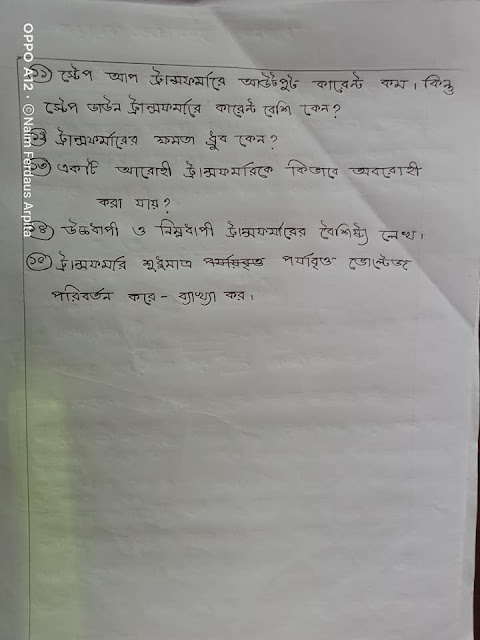 ১১) স্টেপ আপ ট্রান্সফর্মারে আউটপুট কারেন্ট কম। কিন্তু
স্টেপ ডাউন ট্রান্সফর্মারে কারেন্ট বেশি কেন?
১২) ট্রান্সফর্মারের ক্ষমতা ধ্রুব কেন?
১৩) একটি আরোহী ট্রান্সফর্মারকে কিভাবে অবরোহী
করা যায়?
১৪) উচ্চধাপী ও নিম্নধাপী ট্রান্সফর্মারের বৈশিষ্ট্য লেখ।
১৫) ট্রান্সফর্মার শুধুমাত্র পর্যায়বৃত্ত পর্যাবৃত্ত ভোল্টেজ
পরিবর্তন করে - ব্যাখ্যা কর।
OPPO A12 · ©Naim Ferdaus Arpita